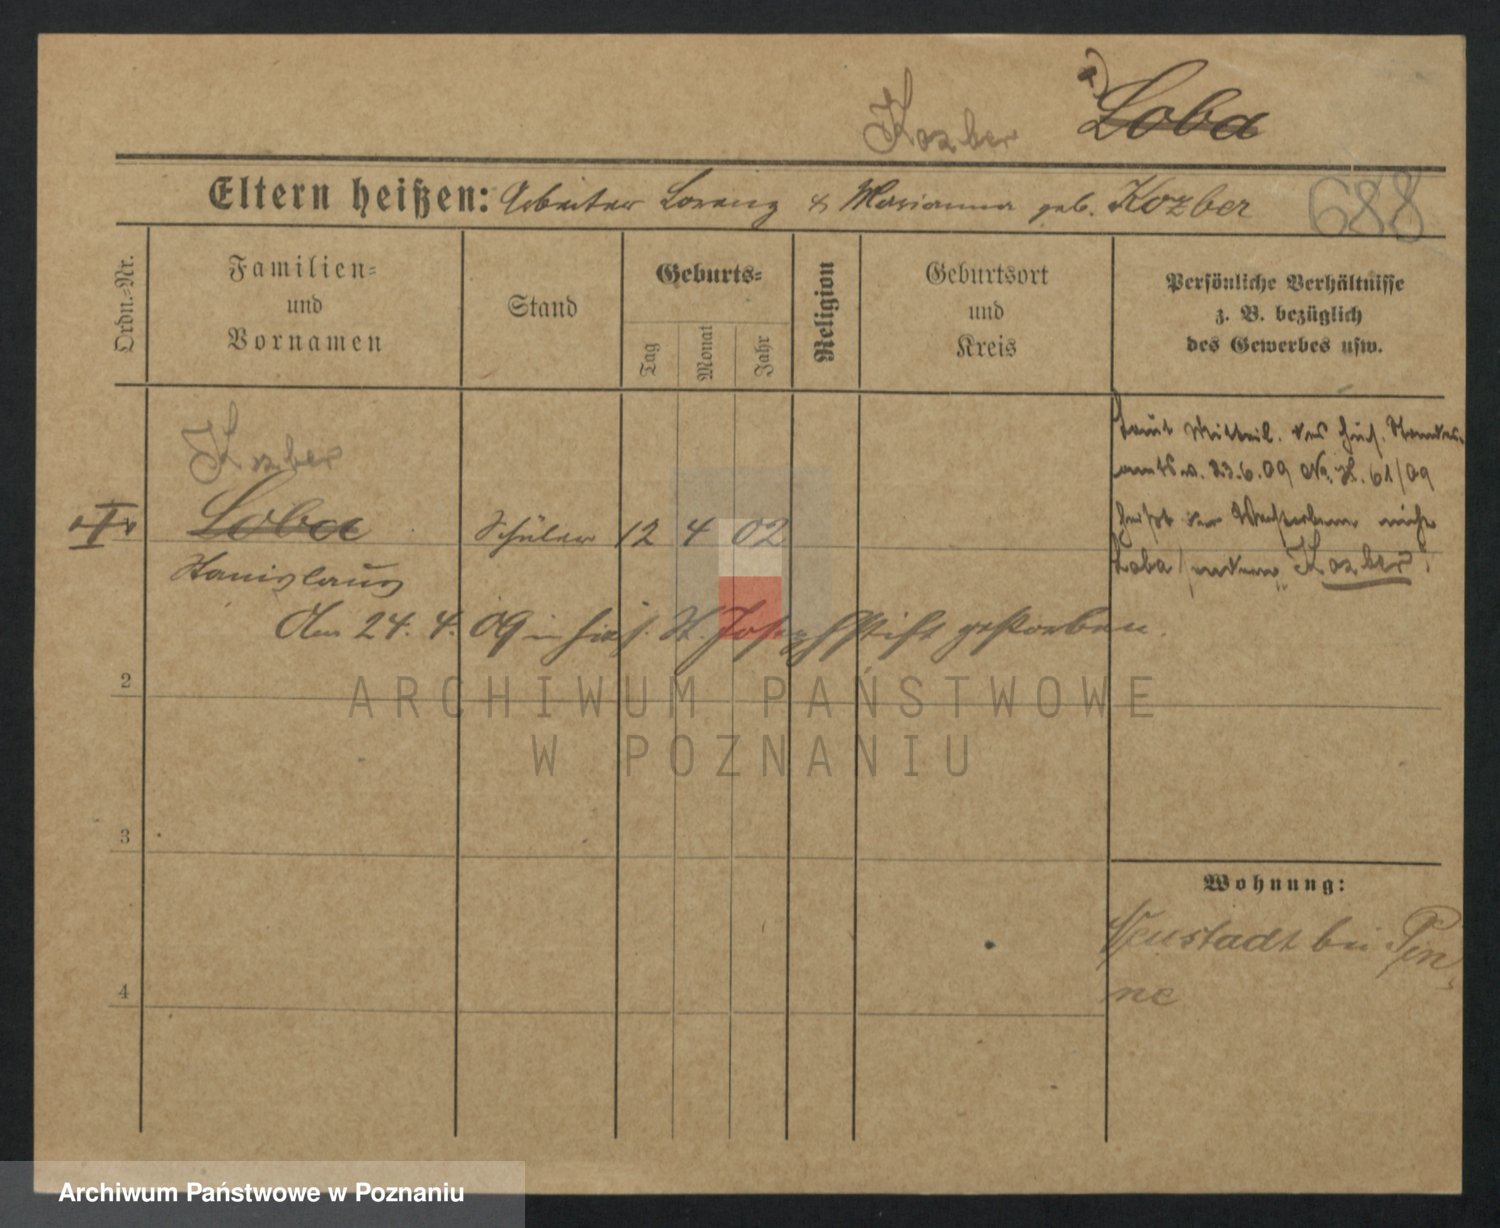 Kozber Loba
Eltern heißen: Arbeiter Lorenz & Marianna geb. Kozber 688
Ordn.-Nr.
Familien-
und
Vornamen
Stand
Geburts-
Tag
Monat
Jahr
Religion
Geburtsort
und
Kreis
Persönliche Verhältnisse
z. B. bezüglich
des Gewerbes usw.
Kozber
Loba Schüler 12 4 02
Stanislaus
Am 24. 4. 09 in hies. St. Josephstift gestorben.
Laut Mitteil. des hies. Standes-
amts v. 23.6.09 No. 61/09
heißt der Verstorbene nicht
Loba sondern "Kozber"!
2
3
4
Wohnung:
Neustadt bei Pin
ne
ARCHIWUM PAŃSTWOWE
W POZNANIU
Archiwum Państwowe w Poznaniu